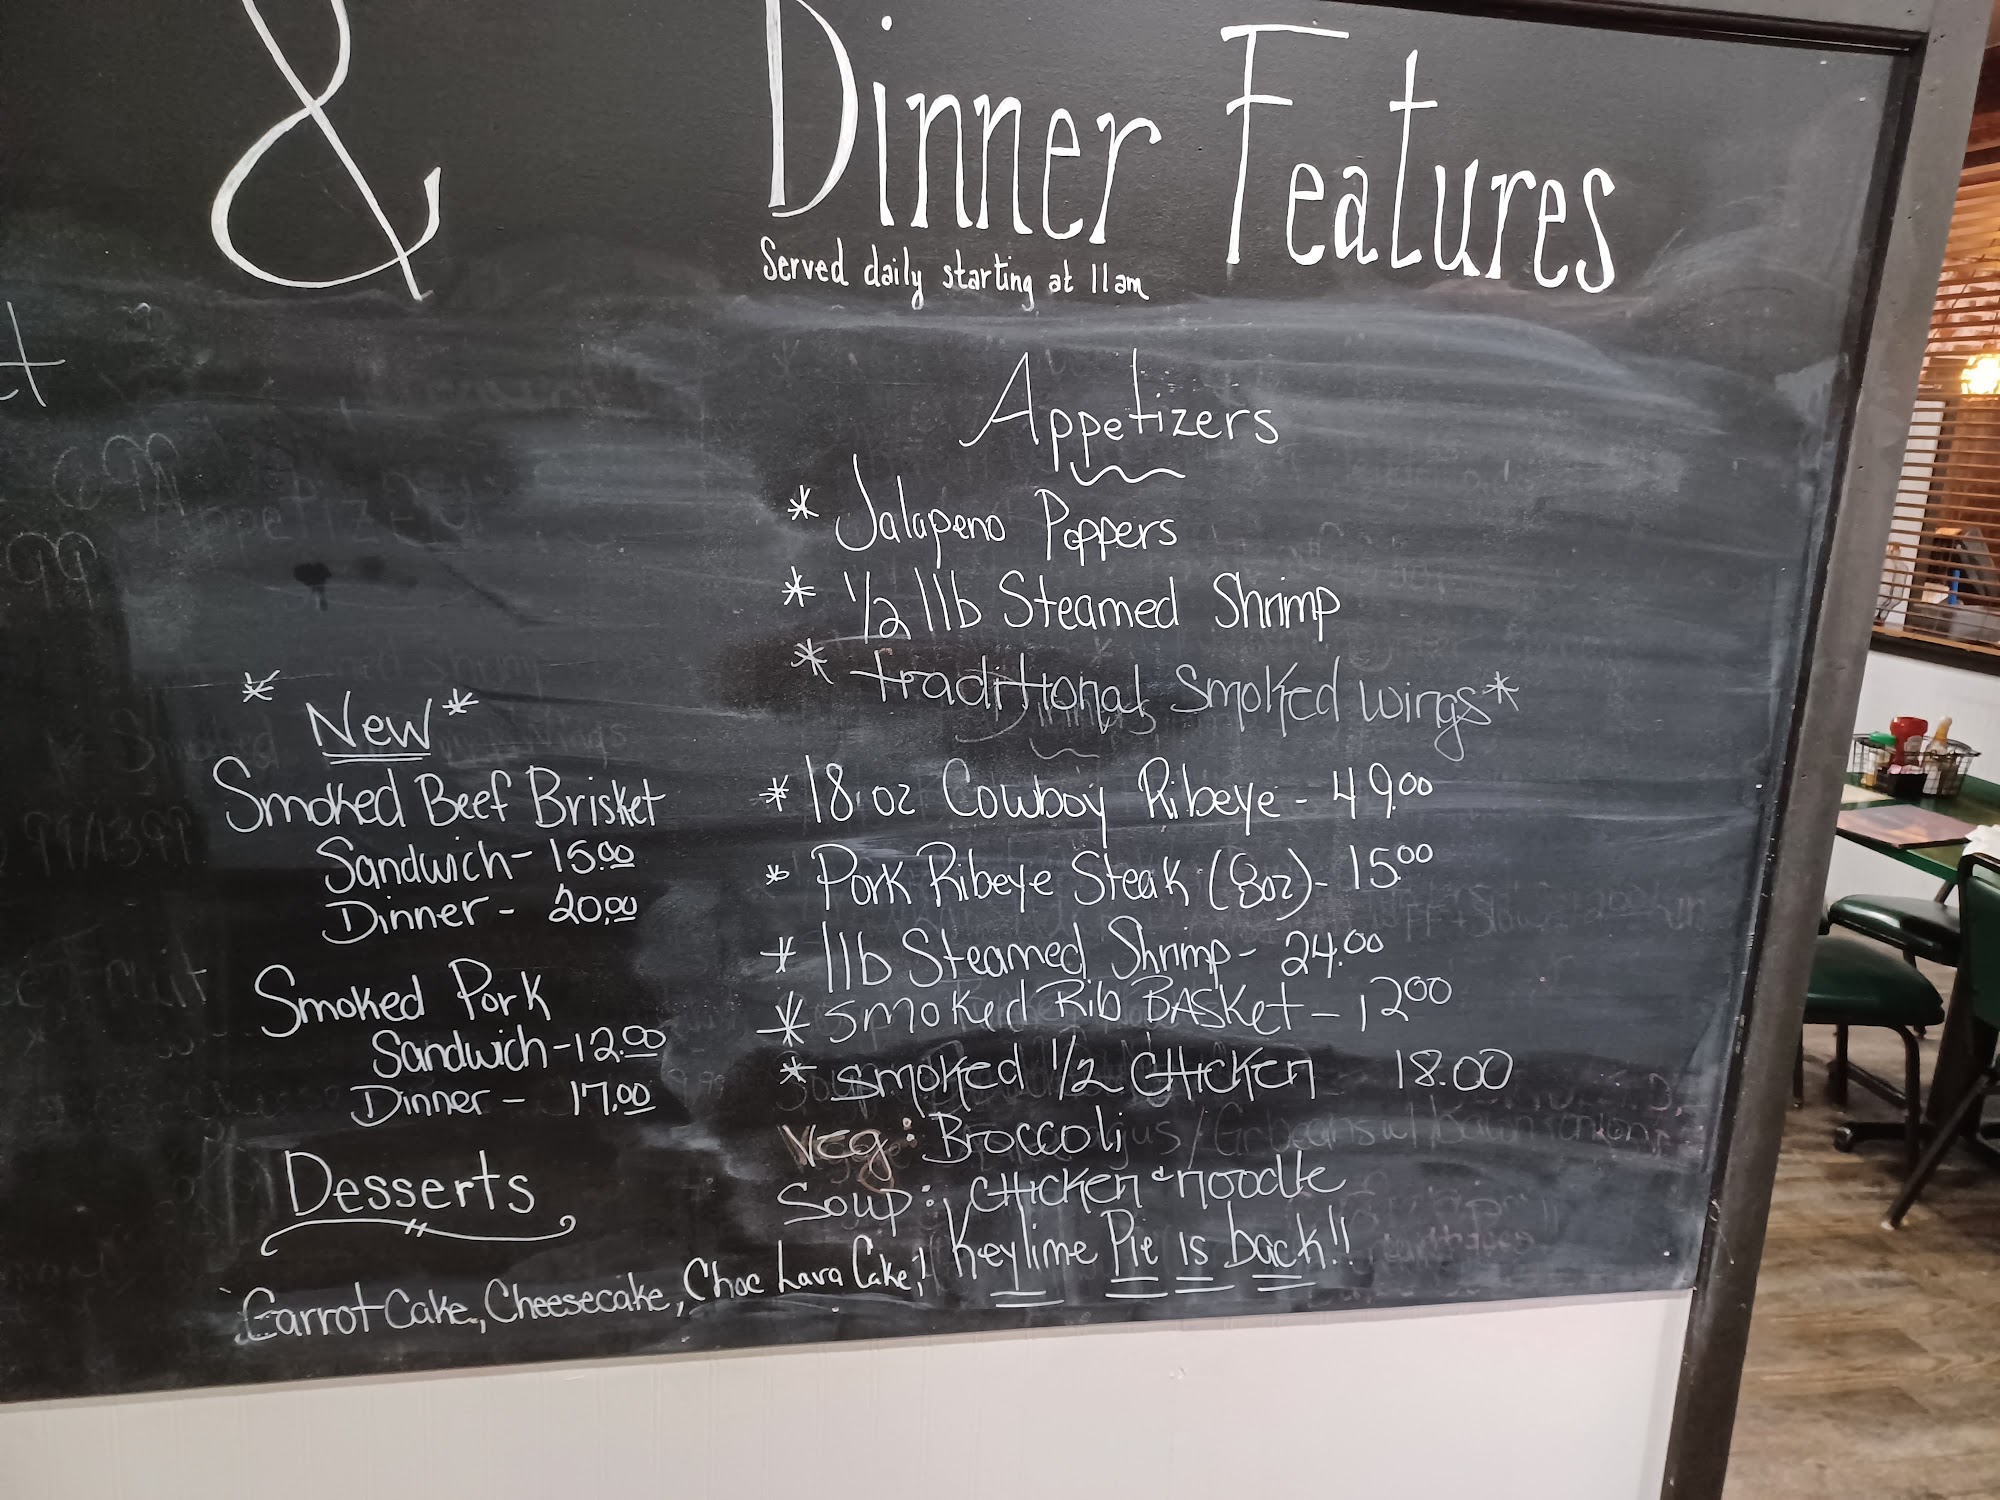 &
Dinner Features
Served daily starting at 11am
Appetizers
* Jalapeno Poppers
* 1/2 1lb Steamed Shrimp
* traditional smoked wings *
* New *
Smoked Beef Brisket
Sandwich - 15.00
Dinner - 20.00
Smoked Pork
Sandwich - 12.00
Dinner - 17.00
* 18 oz Cowboy Ribeye - 49.00
* Pork Ribeye Steak (8oz) - 15.00
* 1lb Steamed Shrimp - 24.00
* Smoked Rib BASket - 12 00
* smoked 1/2 CHicken 18.00
Veg: Broccoli
Soup: CHicken & noodle
Desserts
Carrot Cake, Cheesecake, Choc Lava Cake, Keylime Pie is back!!